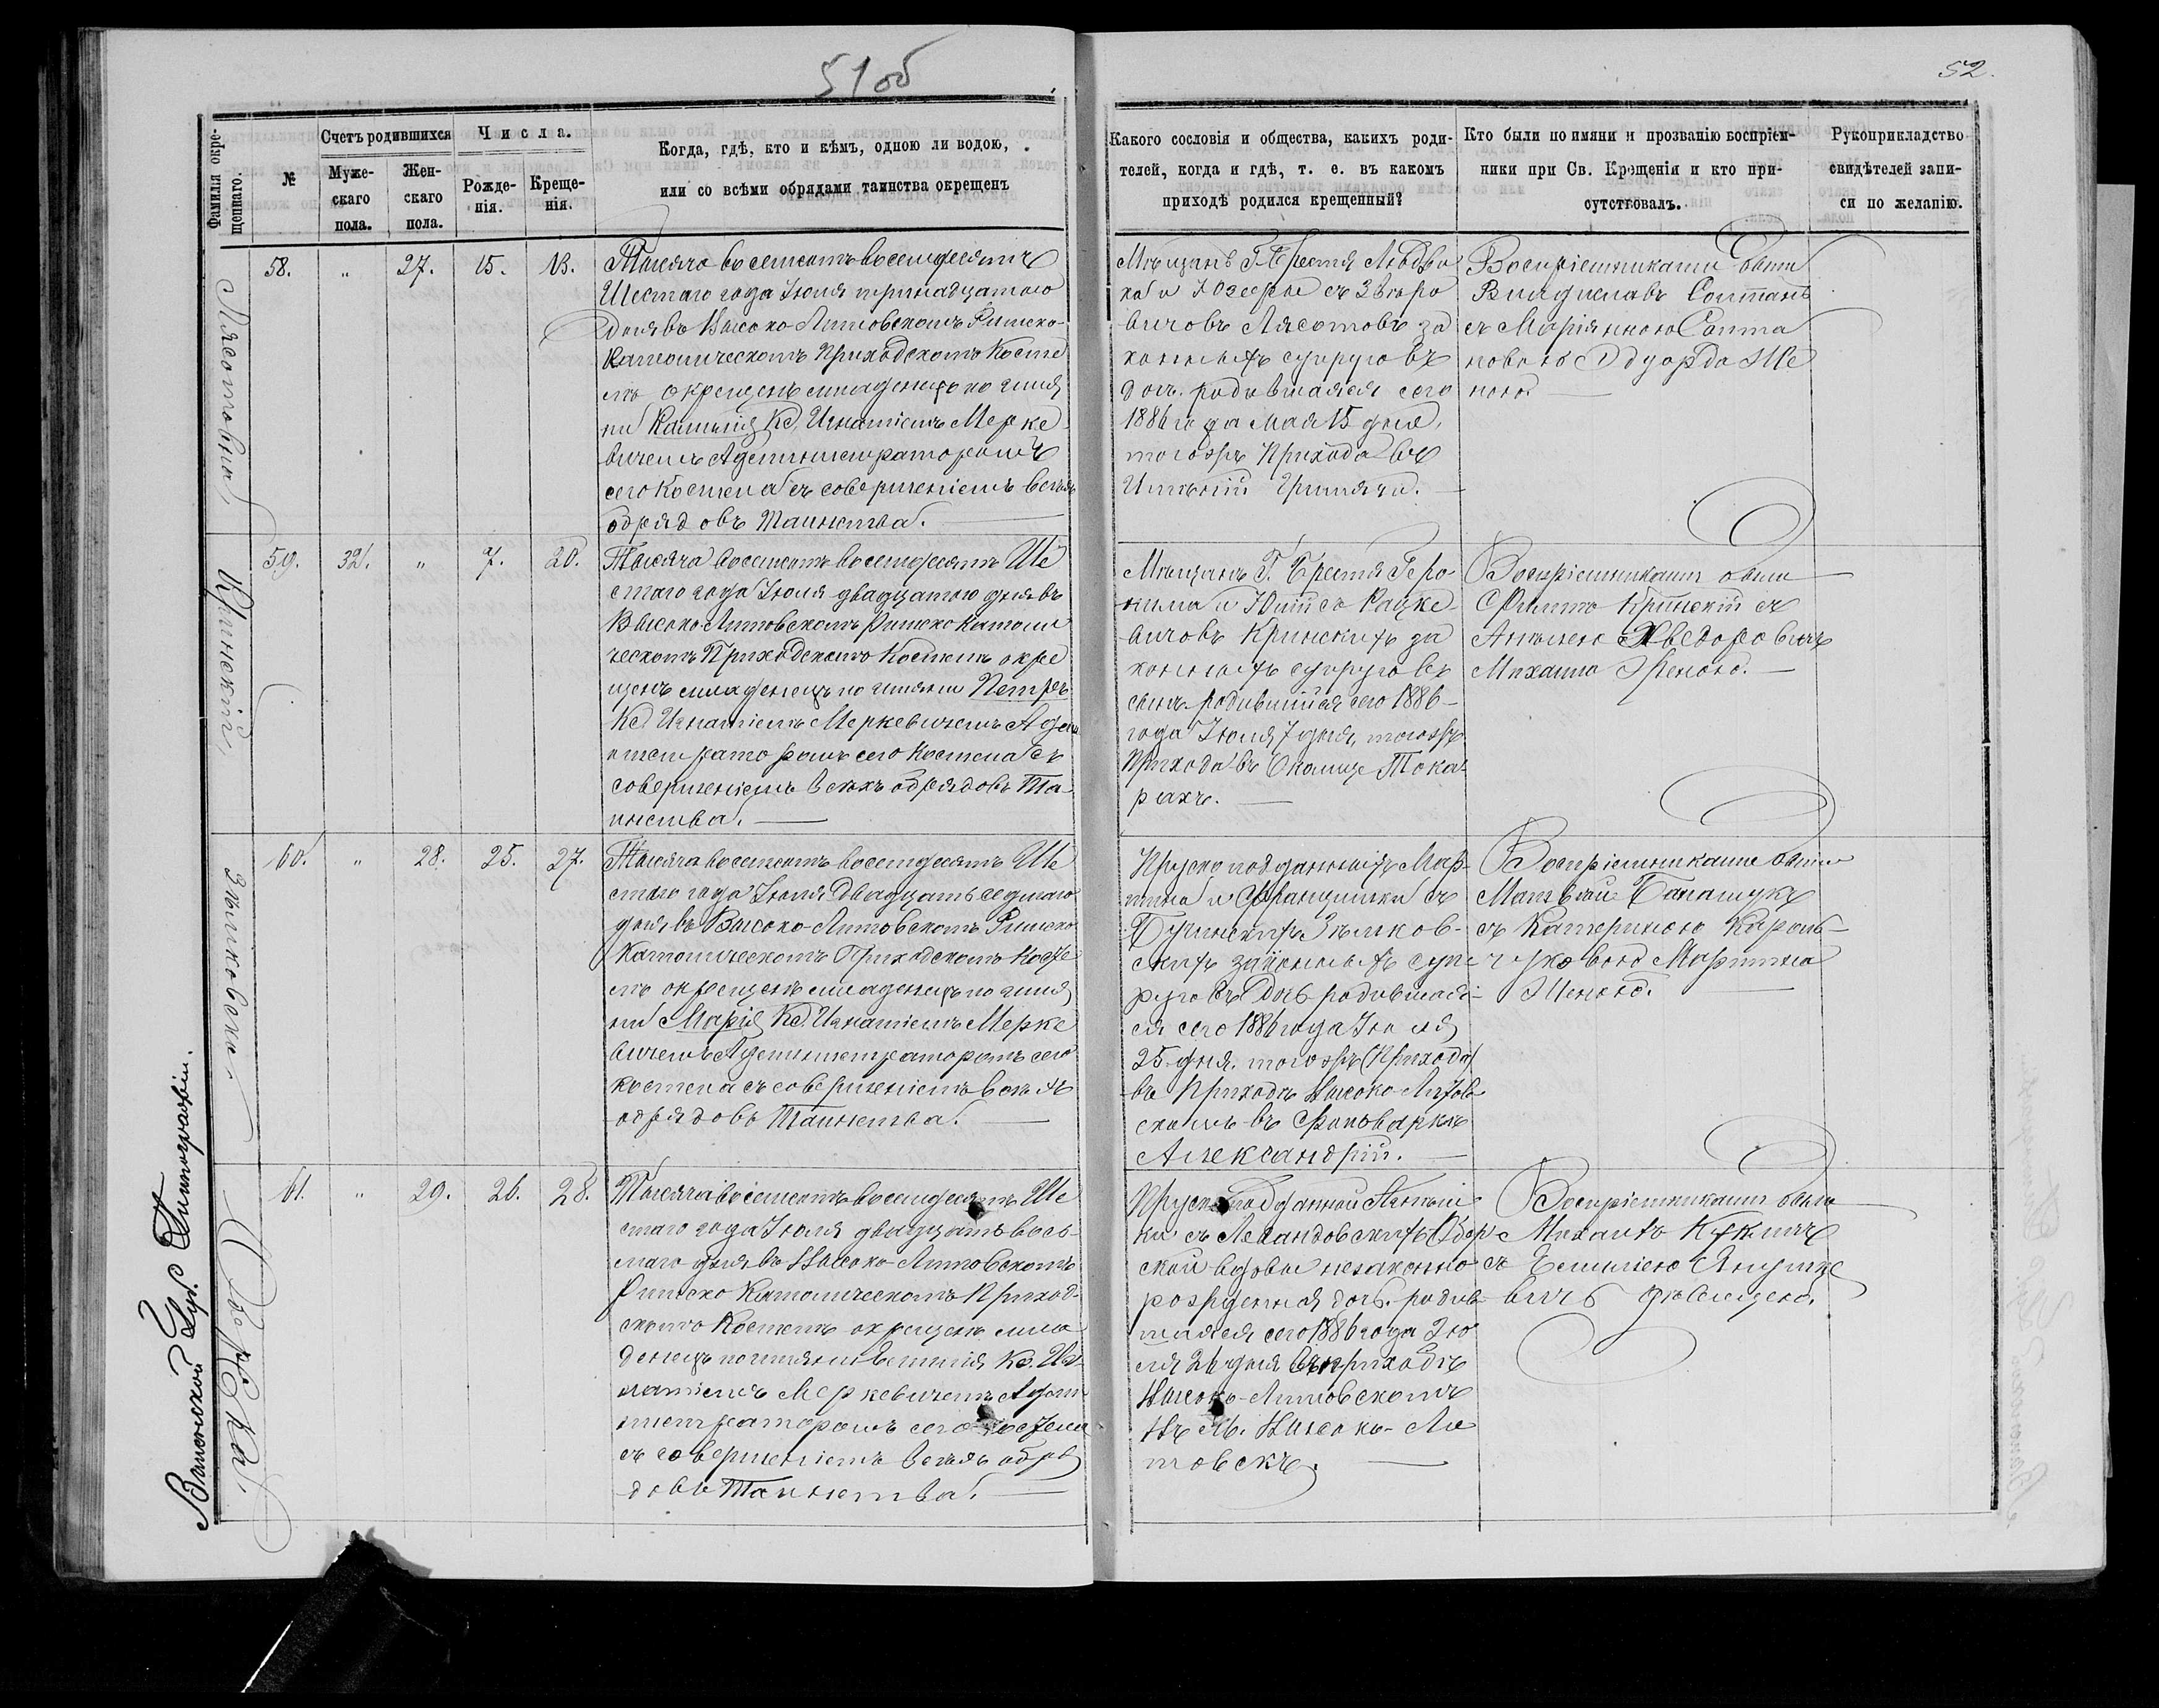 51об
52.
Фамилія окре-
щеннаго.
№
Счетъ родившихся
Муже-
скаго
пола.
Жен-
скаго
пола.
Числа.
Рожде-
нія.
Креще-
нія.
Когда, гдѣ, кто и кѣмъ, одною ли водою,
или со всѣми обрядами таинства окрещенъ
Какого сословія и общества, какихъ роди-
телей, когда и гдѣ, т. е. въ какомъ
приходѣ родился крещенный?
Кто были по имяни и прозванію воспріем-
ники при Св. Крещеніи и кто при-
сутствовалъ.
Рукоприкладство
свидѣтелей запи-
си по желанію.
Лясотовна
58. " 27. 15. 13.
Тысяча восемсотъ восемдесятъ
Шестаго года Іюля тринадцатаго
дня въ Высоко-Литовскомъ Римско-
Католическомъ Приходскомъ Косте
лѣ окрещенъ младенецъ по имя
ни Камилія Кс. Игнатіемъ Мерке
вичемъ Администраторомъ
сего Костела съ совершеніемъ всѣхъ
обрядовъ Таинства.
Мѣщанъ Г. Бреста
и Юзефы съ
Лясотовъ за
конныхъ супруговъ
дочь родившаяся сего
1886 года Мая 15 дня,
тогожъ Прихода въ
Имѣніи
Воспріемниками были
Владиславъ Солтанъ
съ Маріянною Солта
новою Эдуарда Же
ною.
Кринскій
59. 32. " 7. 20.
Тысяча восемсотъ восемдесятъ Ше
стаго года Іюля двадцатаго дня въ
Высоко-Литовскомъ Римско Католи
ческомъ Приходскомъ Костелѣ окре
щенъ младенецъ по имяни Петръ
Кс. Игнатіемъ Меркевичемъ Адми
нистраторомъ сего Костела съ
совершеніемъ всѣхъ обрядовъ Та
инства.
Мѣщанъ Г. Бреста Геро
нима и Юліи съ Рацке
вичовъ Кринскихъ за
конныхъ супруговъ
сынъ родившійся сего 1886
года Іюля 7 дня, тогожъ
Прихода въ Околицѣ Тока
рахъ.
Воспріемниками были
Филиппъ Кринскій съ
Анелею Хведоровичъ
Михаила Женою.
Зѣлковска
60. " 28. 25. 27.
Тысяча восемсотъ восемдесятъ Ше
стаго года Іюля Двадцать седмаго
дня въ Высоко-Литовскомъ Римско
Католическомъ Приходскомъ Косте
лѣ окрещенъ младенецъ по имя
ни Марія Кс. Игнатіемъ Мерке
вичемъ Администраторомъ сего
костела съ совершеніемъ всѣхъ
обрядовъ Таинства.
Пруско подданныхъ Мар
тина и Францишки съ
Зѣлков-
скихъ законныхъ суп-
руговъ дочь родившая
ся сего 1886 года Іюля
25 дня, тогожъ Прихода
въ Приходѣ Высоко-Литов
скомъ въ Фольваркѣ
Александріи.
Воспріемниками были
Матвѣй Банащукъ
съ Катериною Кароль-
чуковою Мартина
Женою.
61. " 29. 26. 28.
Тысяча восемсотъ восемдесятъ Ше
стаго года Іюля двадцать вось
маго дня въ Высоко-Литовскомъ
Римско Католическомъ Приход-
скомъ Костелѣ окрещенъ мла
денецъ по имяни Эмилія Кс. Иг-
натіемъ Меркевичемъ Адми
нистраторомъ сего костела
съ совершеніемъ всѣхъ обря
довъ Таинства.
Пруско подданной
съ Левандовскихъ
ской вдовы незаконно
рожденная дочь родив
шаяся сего 1886 года Ію
ля 26 дня въ приходѣ
Высоко-Литовскомъ
въ М. Высоко-Ли
товскѣ.
Воспріемниками были
Михаилъ
съ Емиліею Янушке
вичъ дѣвицею.
Виленской Губ. Типографіи.